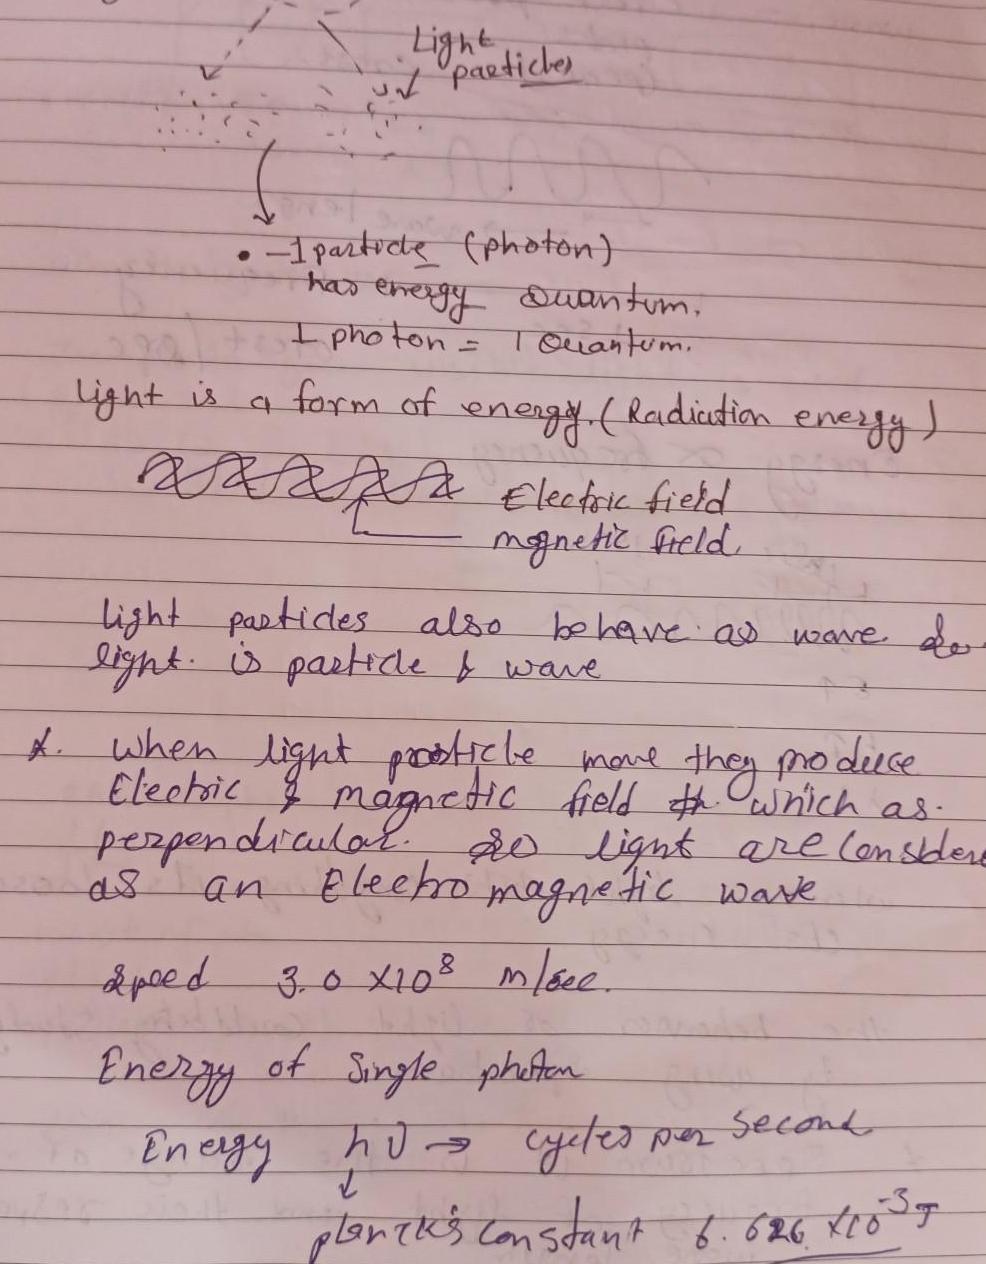 Light
particles
• - 1 particle (photon)
has energy Quantum.
1 photon = 1 Quantum.
light is a form of energy. (Radiation energy)
Electric field
magnetic field.
light particles also behave as wave. So
light is particle & wave
*. When light particle move they produce
Electric & magnetic field which as.
perpendicular. so light are Consider
as an Electro magnetic wave
Speed 3.0 ×10⁸ m/sec.
Energy of Single photon
Energy hυ → cycles per Second
↓
planck's constant 6.626 ×10⁻³ J